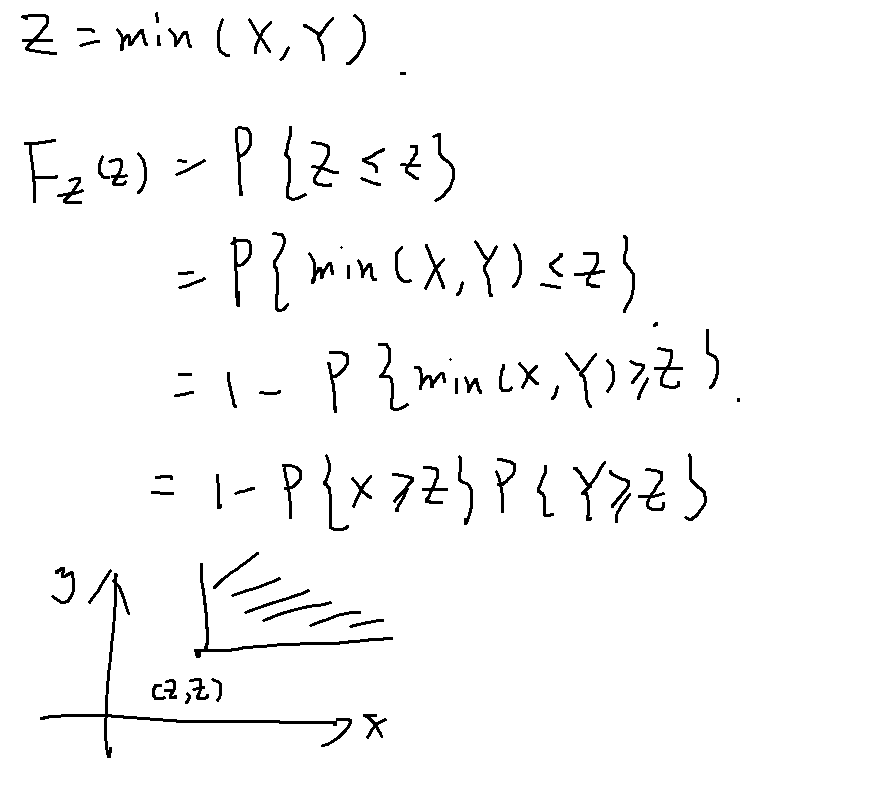 Z = min (X, Y)
F_Z (z) = P { Z ≤ z }
= P { min (X, Y) ≤ z }
= 1 - P { min (X, Y) ⩾ z }
= 1 - P { X ⩾ z } P { Y ⩾ z }
y
(z, z)
x